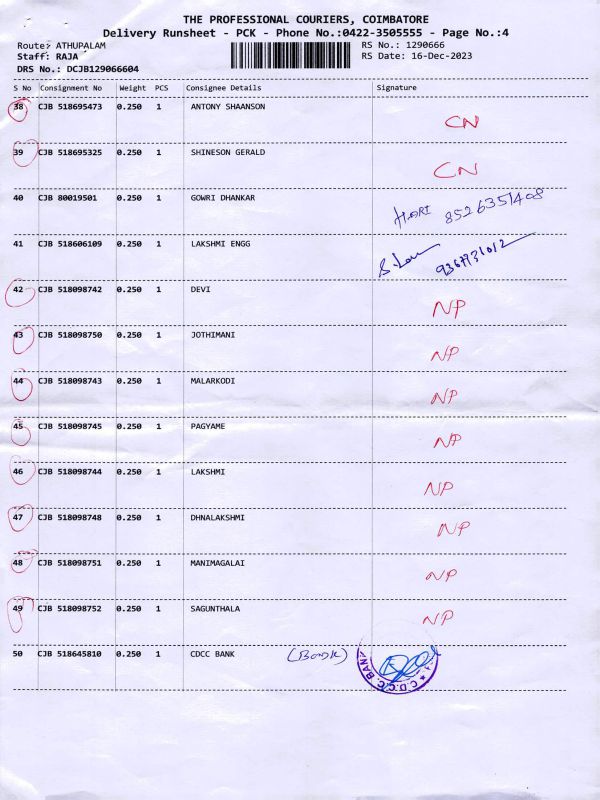 THE PROFESSIONAL COURIERS, COIMBATORE
Delivery Runsheet - PCK - Phone No.:0422-3505555 - Page No.:4
Route: ATHUPALAM RS No.: 1290666
Staff: RAJA RS Date: 16-Dec-2023
DRS No.: DCJB129066604
S No Consignment No Weight PCS Consignee Details Signature
38 CJB 518695473 0.250 1 ANTONY SHAANSON CN
39 CJB 518695325 0.250 1 SHINESON GERALD CN
40 CJB 80019501 0.250 1 GOWRI DHANKAR HARI 8526351408
41 CJB 518606109 0.250 1 LAKSHMI ENGG
42 CJB 518098742 0.250 1 DEVI NP
43 CJB 518098750 0.250 1 JOTHIMANI NP
44 CJB 518098743 0.250 1 MALARKODI NP
45 CJB 518098745 0.250 1 PAGYAME NP
46 CJB 518098744 0.250 1 LAKSHMI NP
47 CJB 518098748 0.250 1 DHNALAKSHMI NP
48 CJB 518098751 0.250 1 MANIMAGALAI NP
49 CJB 518098752 0.250 1 SAGUNTHALA NP
50 CJB 518645810 0.250 1 CDCC BANK (Bank) C.D.C.C. BANK